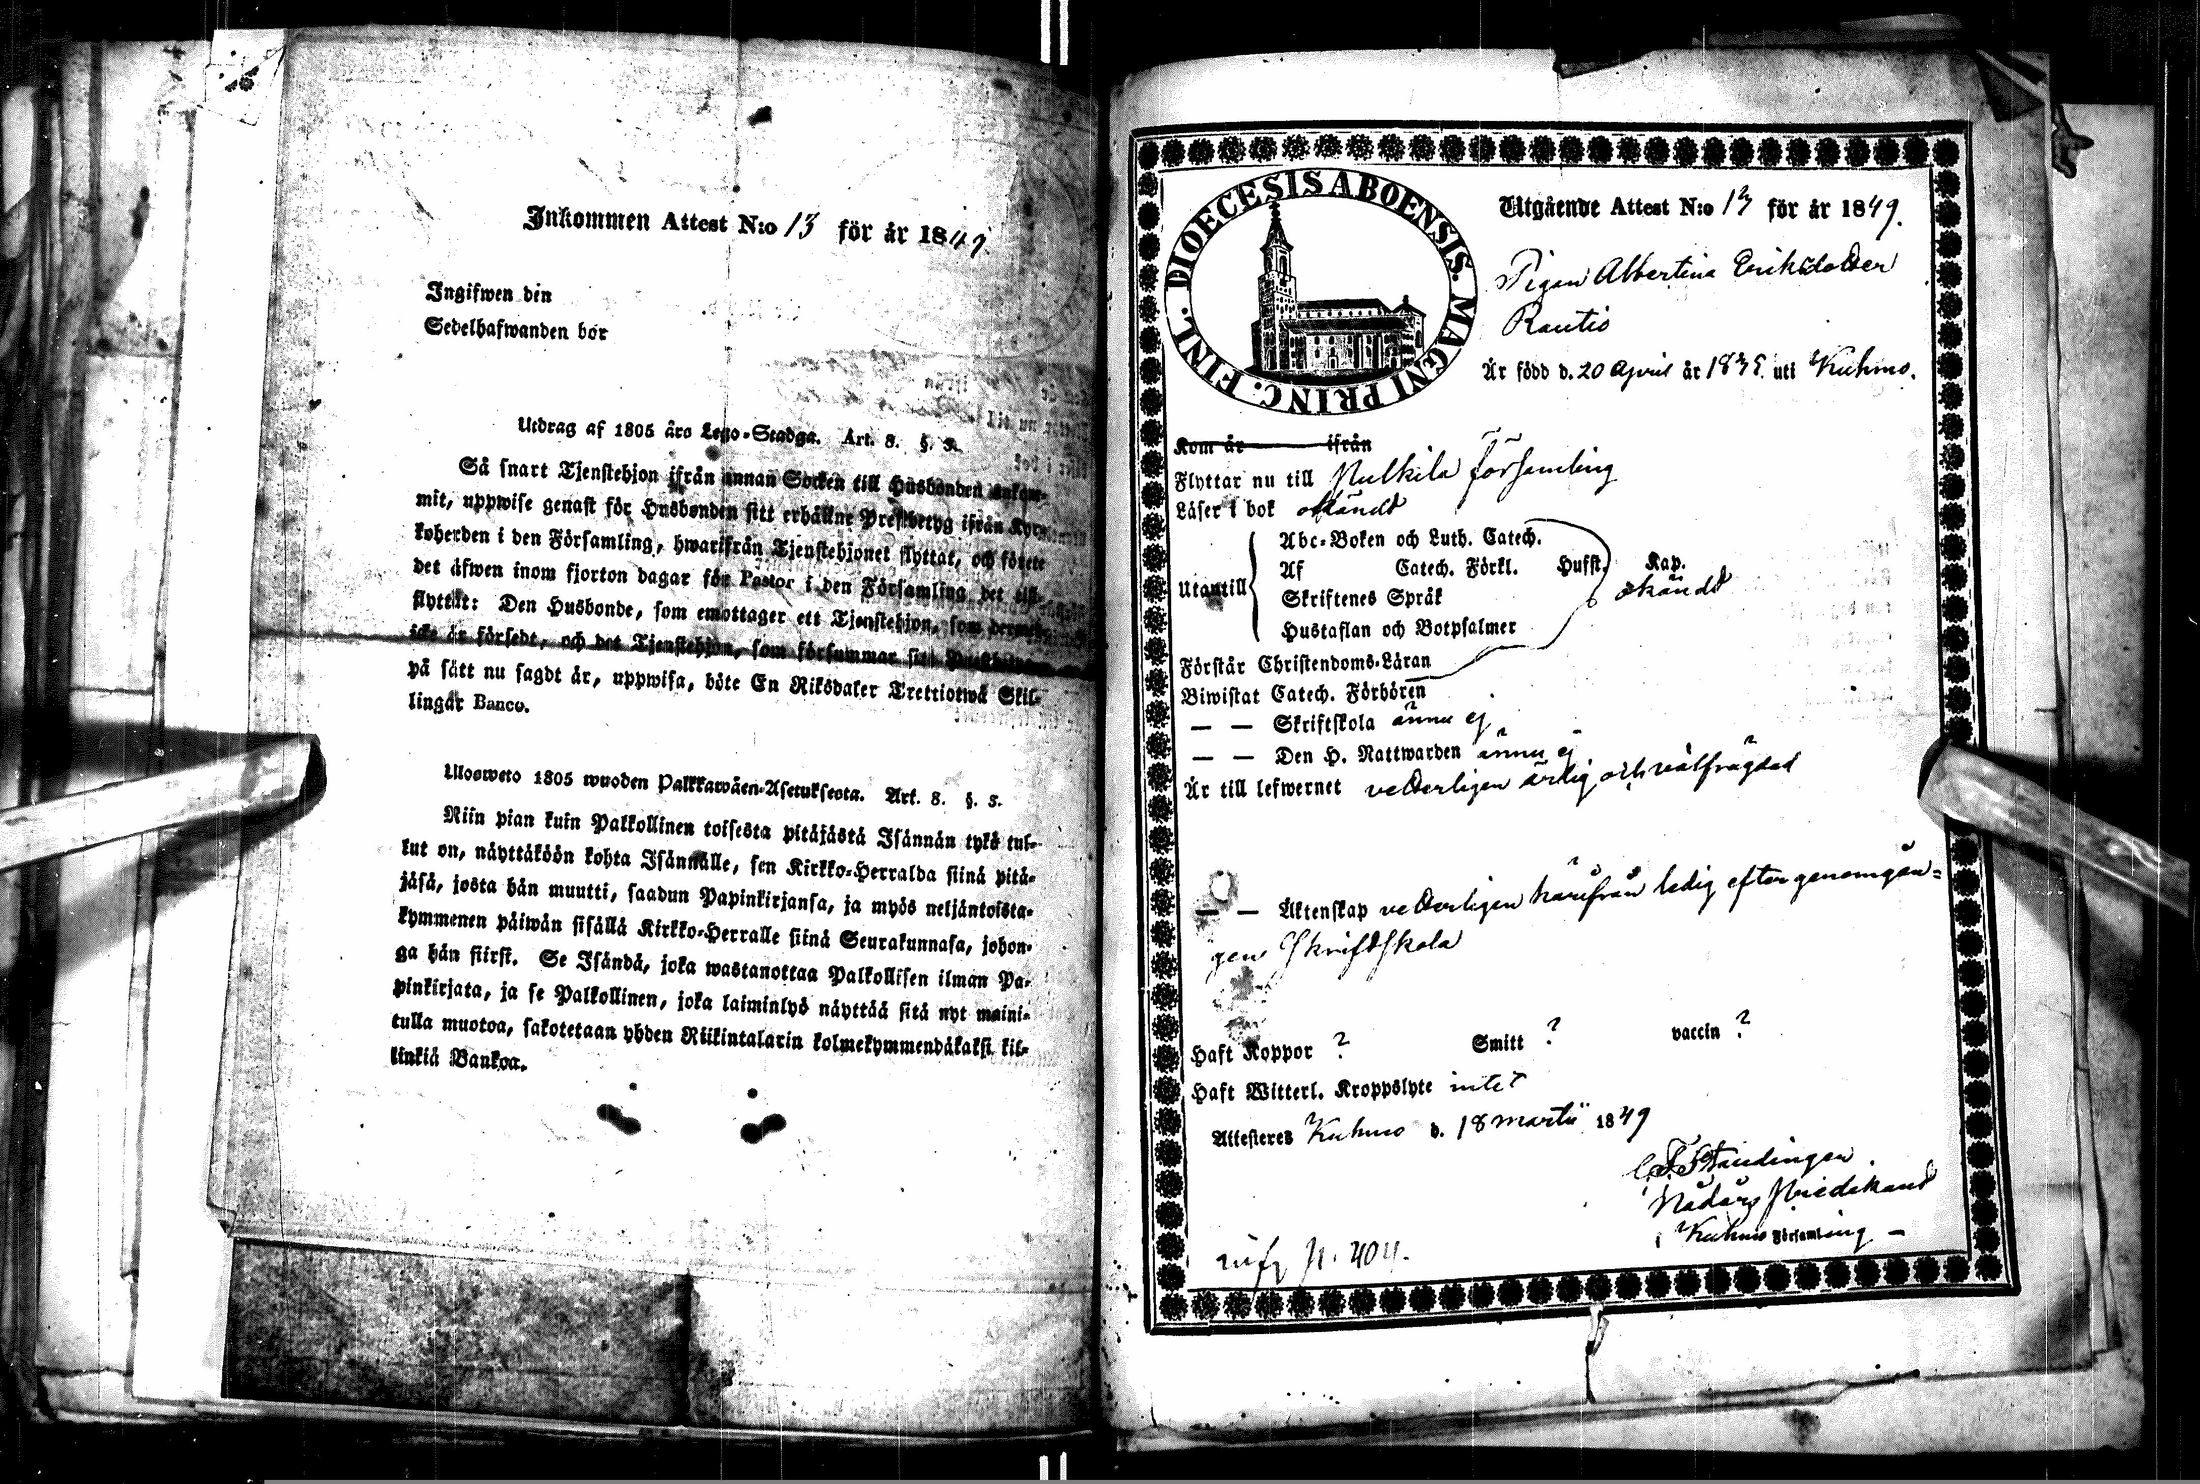 Inkommen Attest N:o 13 för år 1849.
Ingifwen den
Sedelhafwanden bör
Utdrag af 1805 års Lego-Stadga. Art. 8. §. 5.
Så snart Tjenstehjon ifrån annan Socken till Husbonden ankom-
mit, uppwise genast för Husbonden sitt erhållne Prestbetyg ifrån Kyr-
koherden i den Församling, hwarifrån Tjenstehjonet flyttat, och förete
det äfwen inom fjorton dagar för Pastor i den Församling, det till-
flyttat: Den Husbonde, som emottager ett Tjenstehjon, som dermed
icke är försedt, och det Tjenstehjon, som försummar sitt Prestbetyg
på sätt nu sagdt är, uppwisa, böte En Riksdaler Trettiotwå Skil-
lingar Banco.
Ulosweto 1805 wuoden Palkkawäen-Asetuksesta. Art. 8. §. 5.
Niin pian kuin Palkollinen toisesta pitäjästä Isännän tykö tul-
lut on, näyttäköön kohta Isännälle, sen Kirkko-Herralda siinä pitä-
jäsä, josta hän muutti, saadun Papinkirjansa, ja myös neljäntoista-
kymmenen päiwän sisällä Kirkko-Herralle siinä Seurakunnasa, johon-
ga hän siirst. Se Isändä, joka wastanottaa Palkollisen ilman Pa-
pinkirjata, ja se Palkollinen, joka laiminlyö näyttää sitä nyt maini-
tulla muotoa, sakotetaan yhden Riikintalarin kolmekymmendäkaksi kil-
linkiä Bankoa.
DIOECESIS ABOENSIS. MAGNI PRINC. FINL.
Utgående Attest N:o 13 för år 1849.
Pigan Albertina Eriksdotter
Rautio
Är född d. 20 April år 1835 uti Kuhmo.
Kom år ifrån
Flyttar nu till Pulkila Församling
Läser i bok okändt
Abc-Boken och Luth. Catech.
Utantill Af Catech. Förkl. Hufst. Kap.
okändt
Skriftenes Språk
Hustaflan och Botpsalmer
Förstår Christendoms-Läran
Biwistat Catech. Förhören
— — Skriftskola ännu ej
— — Den H. Nattwarden ännu ej
Är till lefwernet vetterligen ärlig och välfrägdad
— — Äktenskap vetterligen härifrån ledig efter genomgån-
gen Skriftskola
Haft Koppor ? Smitt ? vaccin ?
Haft Witterl. Kroppslyte intet
Attesteres Kuhmo d. 18 martii 1849
Nådårs Predikant
i Kuhmo Församling —